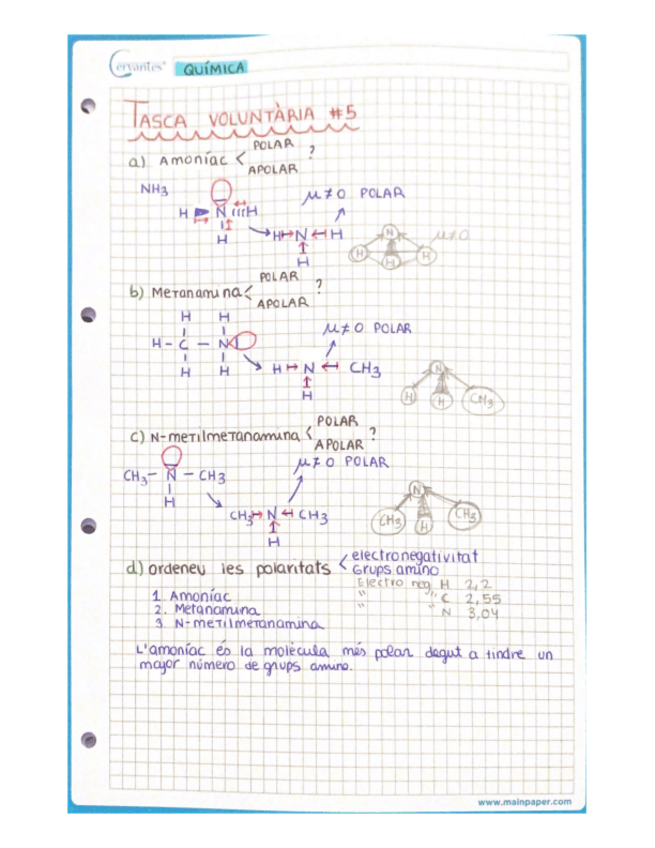 Cervantes® QUÍMICA
TASCA VOLUNTÀRIA #5
a) Amoníac < POLAR APOLAR ?
NH3
μ ≠ 0 POLAR
H N H
H
H N H
H
N
H H H
μ≠0
b) Metanamina < POLAR APOLAR ?
H H
H - C - N
H H
μ ≠ 0 POLAR
H N CH3
H
N
H H CH3
c) N-metilmetanamina < POLAR APOLAR ?
μ ≠ 0 POLAR
CH3 - N - CH3
H
CH3 N CH3
H
N
CH3 H CH3
d) ordeneu les polaritats < electronegativitat
Grups amino
Electroneg H 2,2
" " C 2,55
" " N 3,04
1. Amoníac
2. Metanamina
3. N-metilmetanamina
L'amoníac és la molècula més polar degut a tindre un
major número de grups amino.
www.mainpaper.com